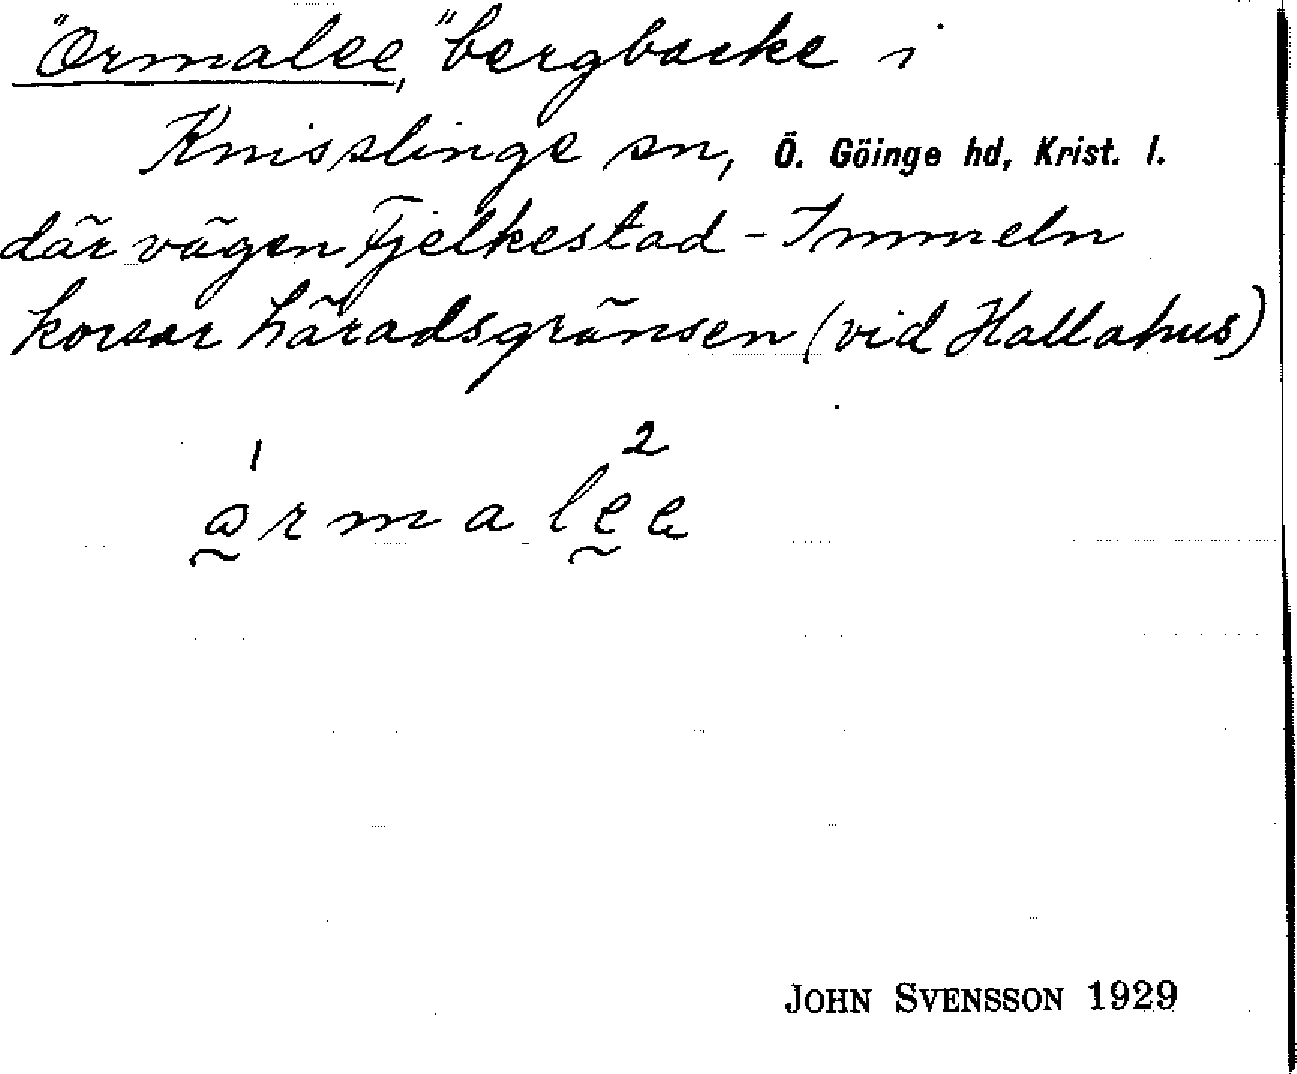 "Ormalee," bergbacke i
Knisslinge sn, Ö. Göinge hd, Krist. l.
där vägen Fjelkestad - Immeln
korsar häradsgränsen (vid Hallahus)
1 2
ormalee
JOHN SVENSSON 1929